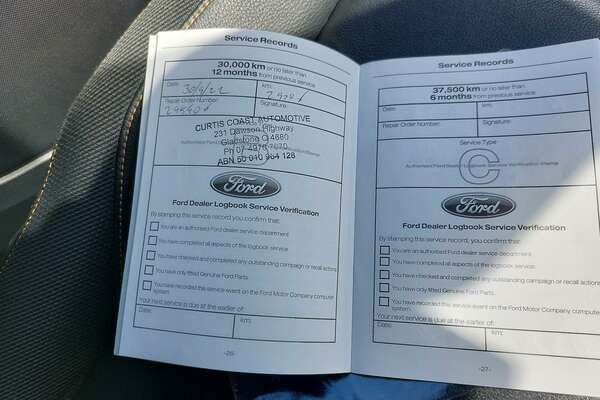 Service Records
30,000 km or no later than
12 months from previous service
Date: 30/9/22
km:
Repair Order Number:
Signature:
CURTIS COAST AUTOMOTIVE
231 Dawson Highway
Gladstone Q 4680
Ph 07 4976 7670
ABN 50 010 964 128
Ford
Ford Dealer Logbook Service Verification
By stamping this service record you confirm that:
You are an authorised Ford dealer service department
You have completed all aspects of the logbook service
You have checked and completed any outstanding campaign or recall actions
You have only fitted Genuine Ford Parts
You have recorded this service event on the Ford Motor Company computer
system
Your next service is due at the earlier of:
Date:
km:
-26-
Service Records
37,500 km or no later than
6 months from previous service
Date:
km:
Repair Order Number:
Signature:
Service Type
Authorised Ford Dealer Logbook Service Verification Stamp
C
Ford
Ford Dealer Logbook Service Verification
By stamping this service record you confirm that:
You are an authorised Ford dealer service department
You have completed all aspects of the logbook service
You have checked and completed any outstanding campaign or recall actions
You have only fitted Genuine Ford Parts
You have recorded this service event on the Ford Motor Company computer
system
Your next service is due at the earlier of:
Date:
km:
-27-